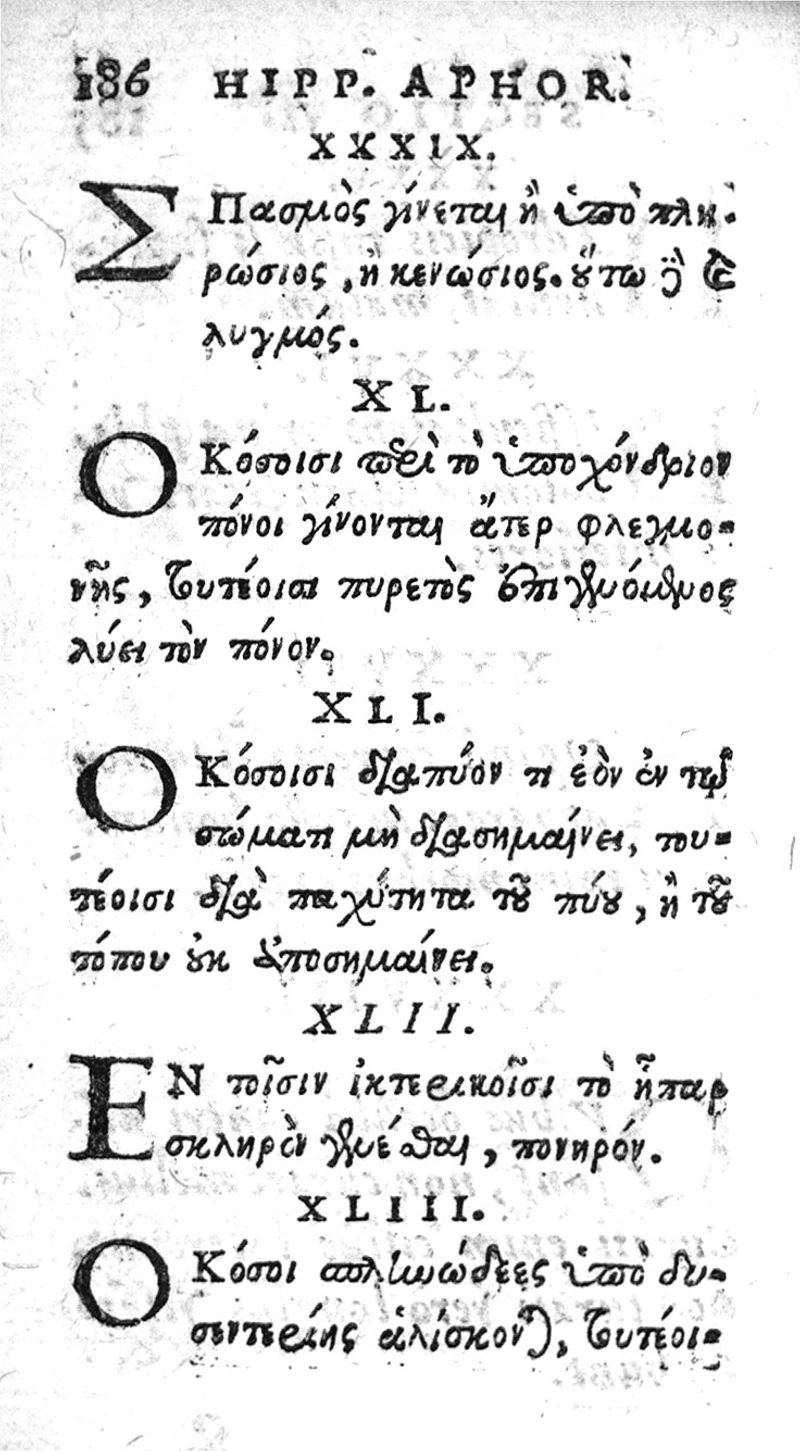 186 HIPP. APHOR.
XXXIX.
ΣΠασμὸς γίνεται ἢ ὑπὸ πλη-
ρώσιος, ἢ κενώσιος. οὕτω δὲ καὶ
λυγμός.
XL.
ΟΚόσοισι περὶ τὸ ὑποχόνδριον
πόνοι γίνονται ἄτερ φλεγμο-
νῆς, τουτέοισι πυρετὸς ἐπιγενόμενος
λύει τὸν πόνον.
XLI.
ΟΚόσοισι διαπύον τι ἐὸν ἐν τῷ
στώματι μὴ διασημαίνει, του-
τέοισι διὰ παχύτητα τοῦ πύου, ἢ τοῦ
τόπου οὐκ ἀποσημαίνει.
XLII.
ΕΝ τοῖσιν ἰκτερικοῖσι τὸ ἧπαρ
σκληρὸν γενέσθαι, πονηρόν.
XLIII.
ΟΚόσοι σπληνώδεες ὑπὸ δυ-
σεντερίης ἁλίσκονται, τουτέοι-